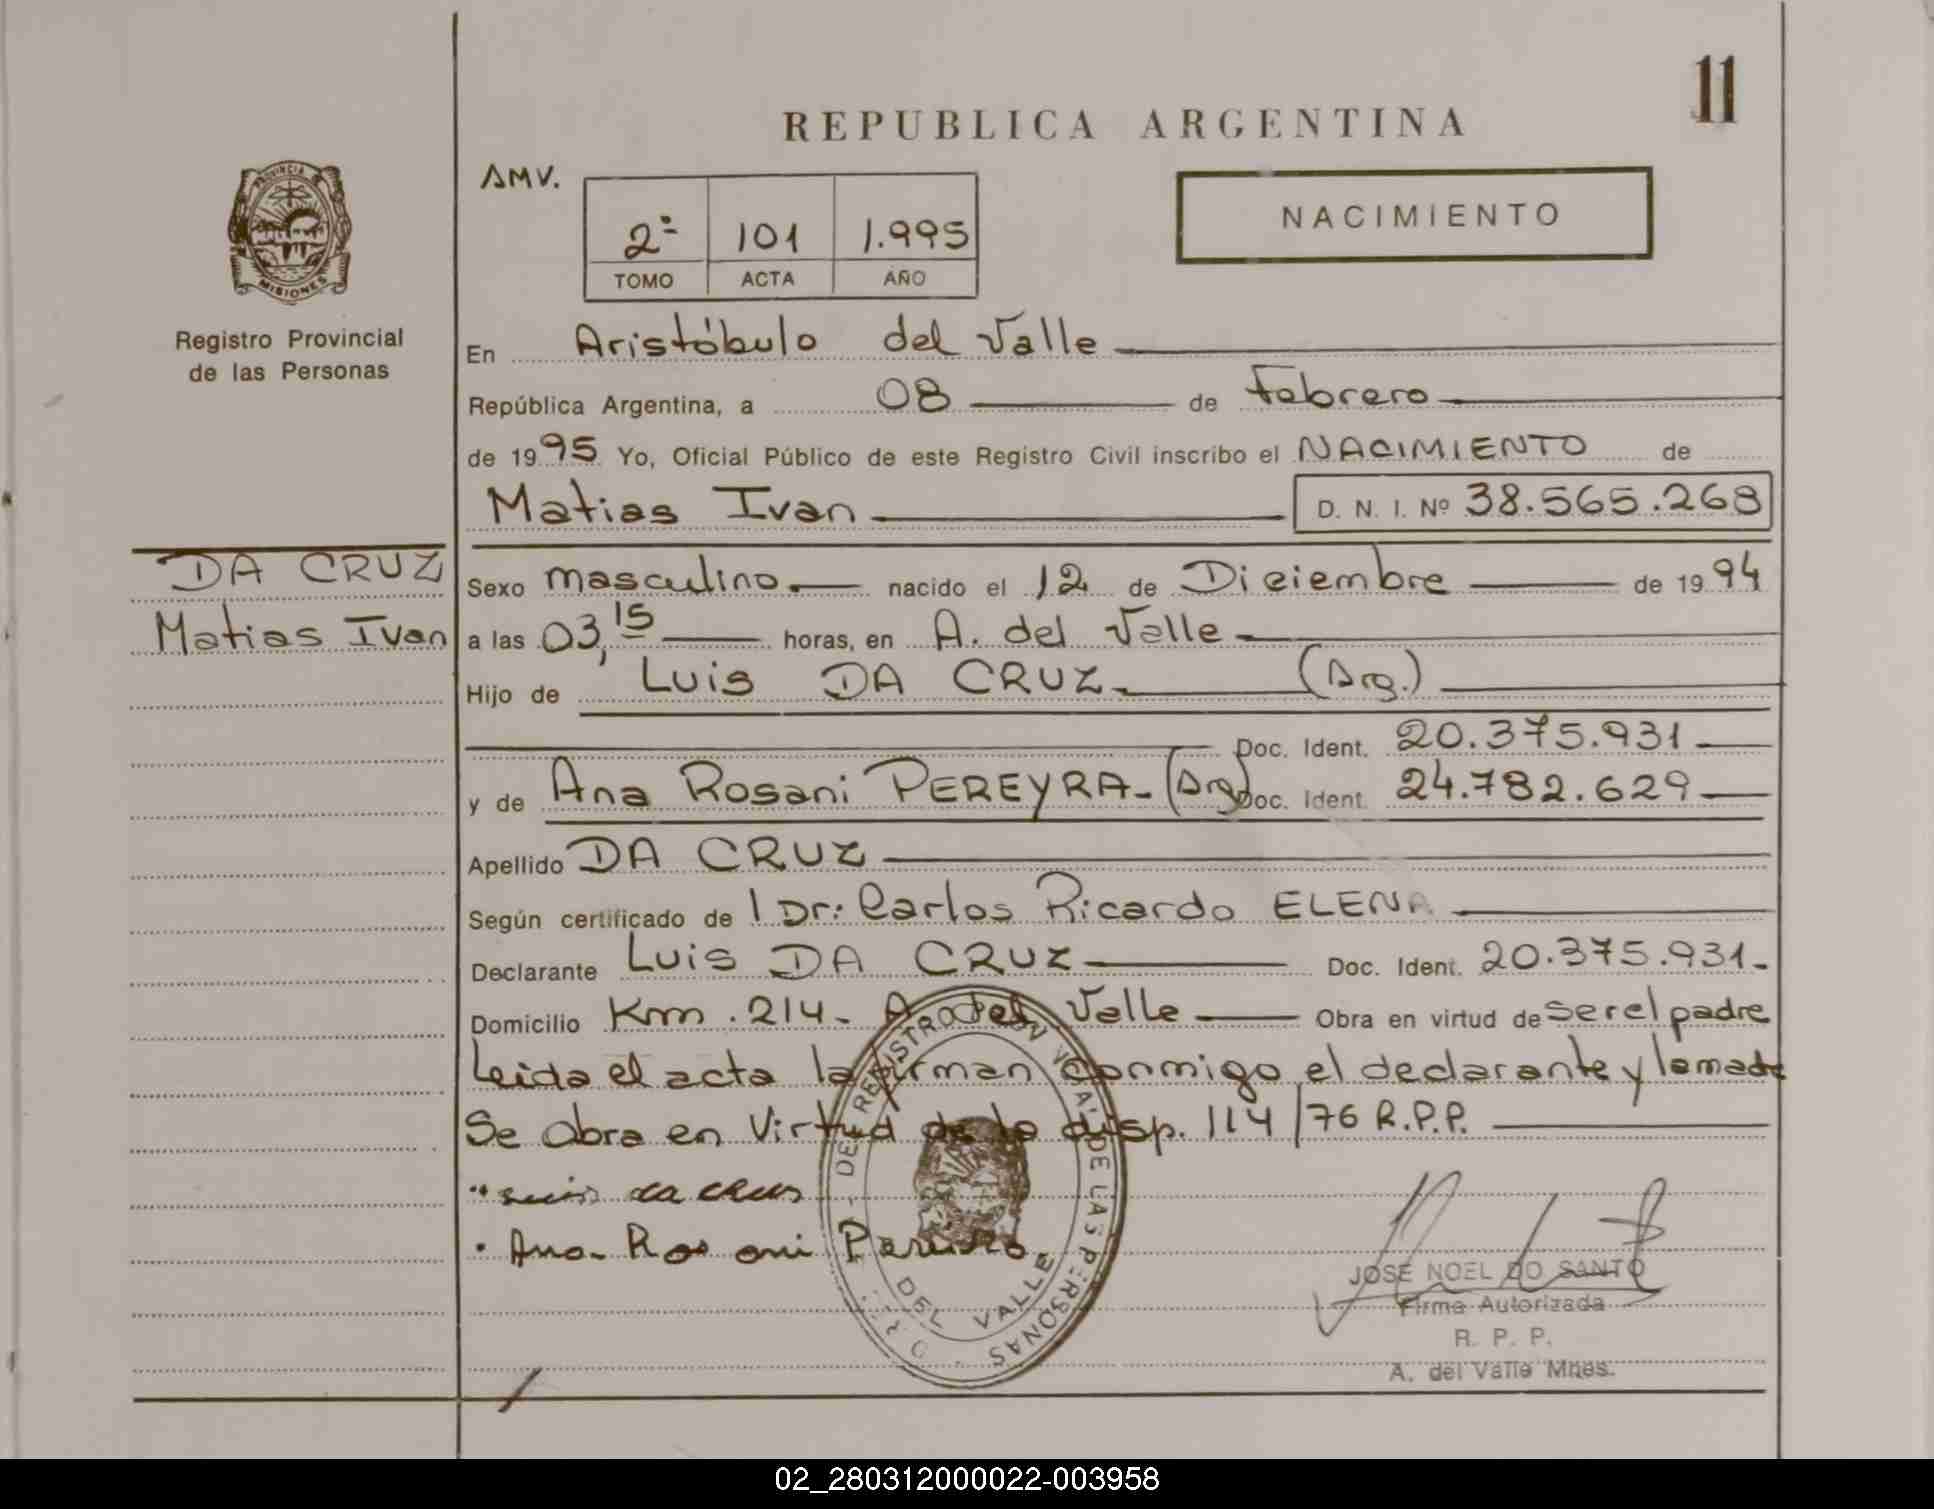 11
REPUBLICA ARGENTINA
AMV.
NACIMIENTO
2º 101 1.995
TOMO ACTA AÑO
PROVINCIA DE
MISIONES
Registro Provincial
de las Personas
En Aristóbulo del Valle
República Argentina, a 08 de Febrero
de 1995 Yo, Oficial Público de este Registro Civil inscribo el NACIMIENTO de
Matias Ivan D. N. I. Nº 38.565.268
DA CRUZ
Matias Ivan
Sexo masculino. nacido el 12 de Diciembre de 1994
a las 03,15 horas, en A. del Valle
Hijo de Luis DA CRUZ (Arg.)
Doc. Ident. 20.375.931
y de Ana Rosani PEREYRA (Arg) Doc. Ident. 24.782.629
Apellido DA CRUZ
Según certificado de 1 Dr: Carlos Ricardo ELENA
Declarante Luis DA CRUZ Doc. Ident. 20.375.931
Domicilio Km. 214 A. del Valle Obra en virtud de ser el padre
Leida el acta la firman conmigo el declarante y la madre
Se obra en Virtud de la disp. 114/76 R.P.P.
luis da crus
Ana Rosani Pereira
DEL REGISTRO DE LAS PERSONAS
DEL VALLE
JOSE NOEL DO SANTO
Firma Autorizada
R. P. P.
A. del Valle Mnes.
02_280312000022-003958